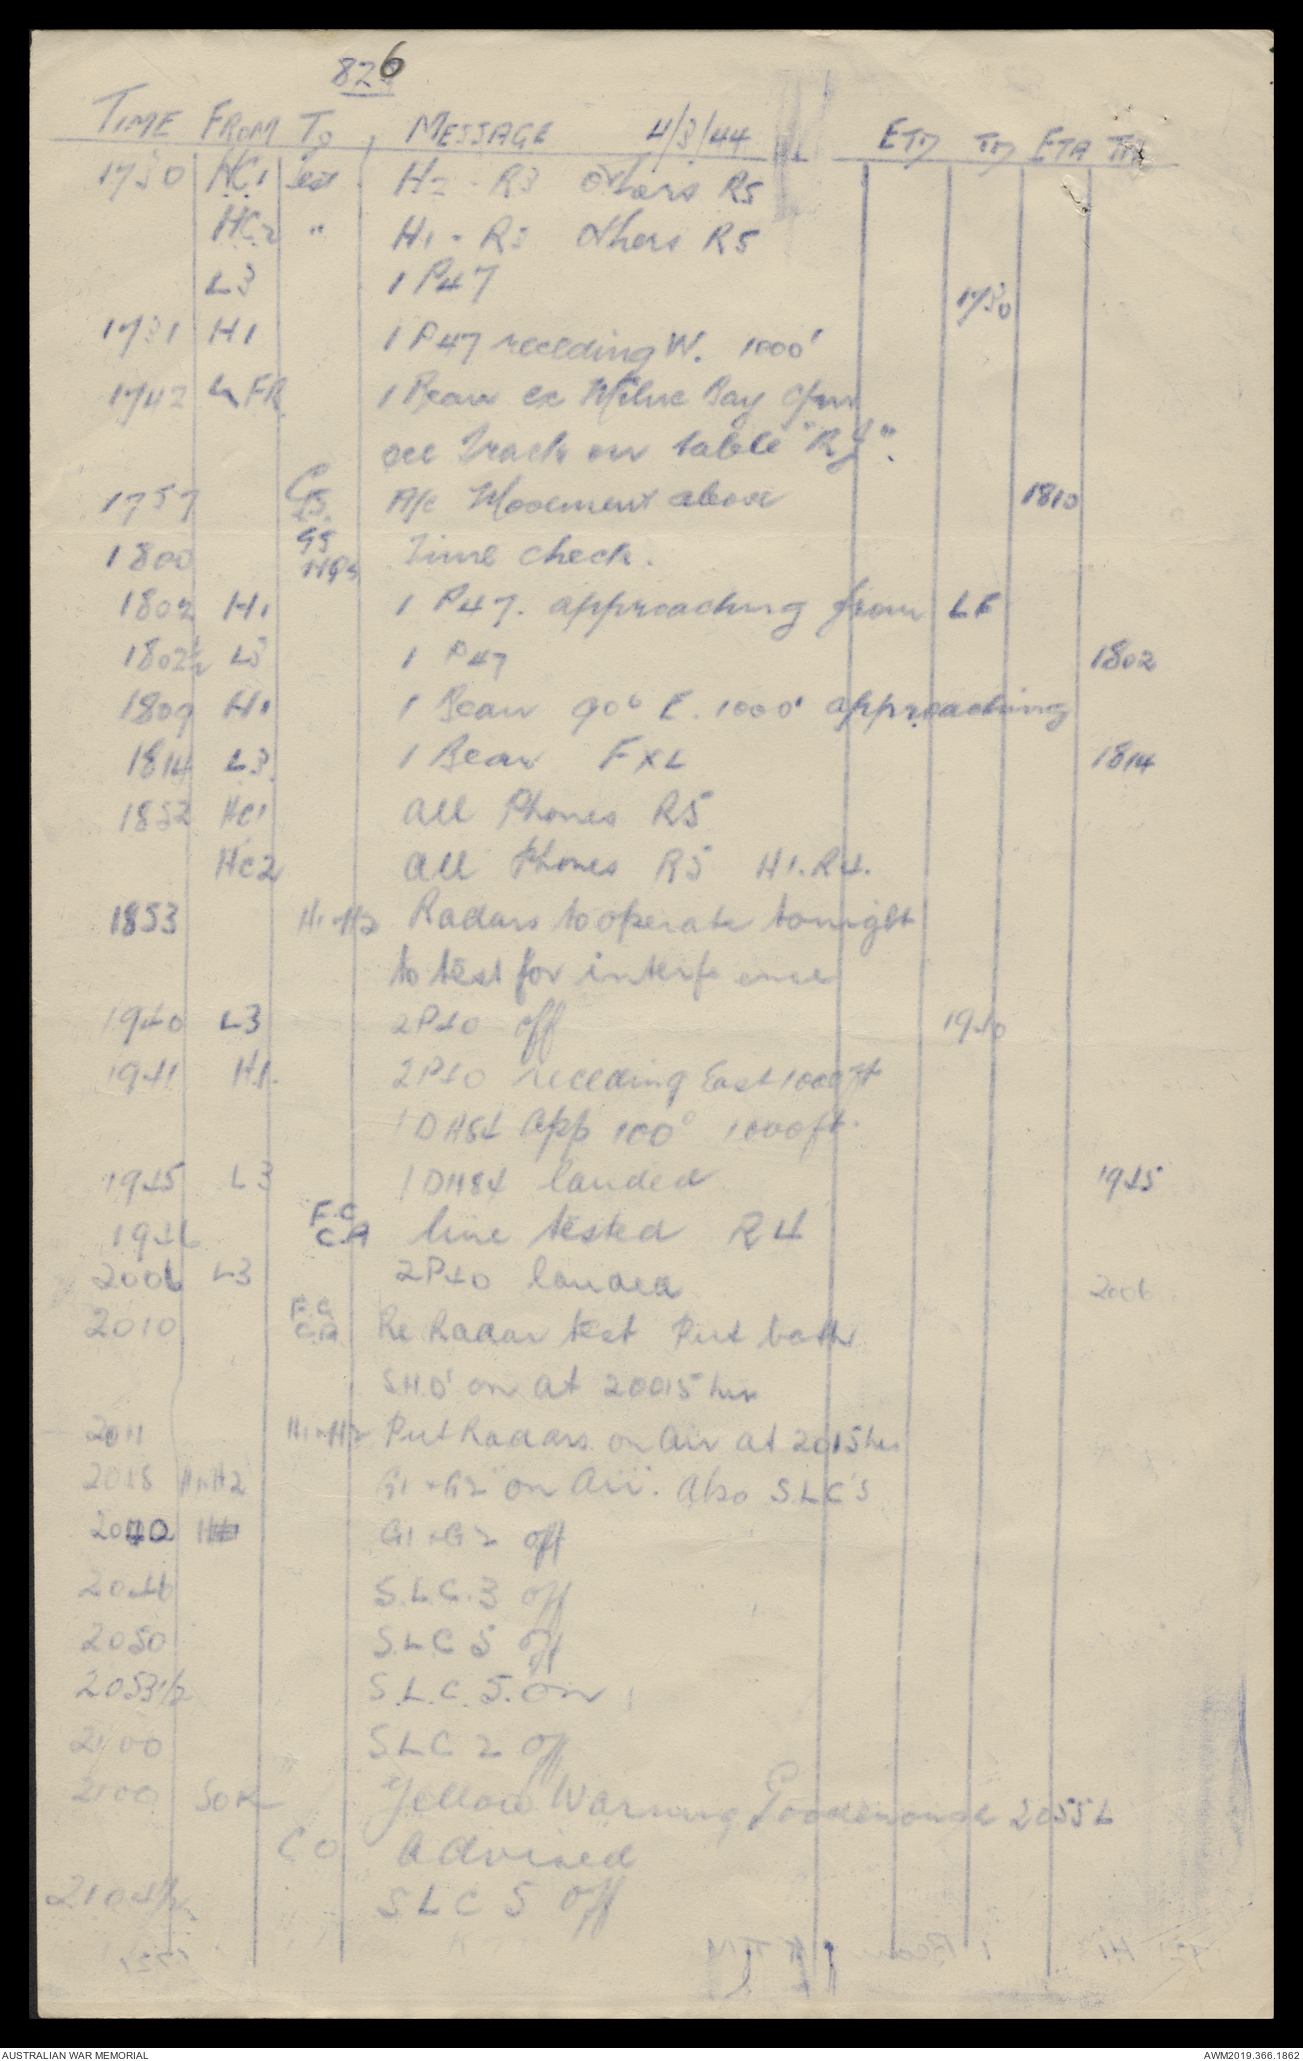 826
TIME FROM TO MESSAGE 4/3/44 ETD TD ETA TA
1730 HC1 Test H2 - R3 others R5
HC2 " H1 - R3 others R5
L3 1 P47 1730
1731 H1 1 P47 receding W. 1000'
1742 FR 1 Beau ex Milne Bay
see Track on table "
1757 A/c Movement above 1810
1800 GS
HQs Time check.
1802 H1 1 P47. approaching from LF
1802½ L3 1 P47 1802
1809 H1 1 Beau 90° E. 1000' approaching
1814 L3 1 Beau FXL 1814
1852 HC1 All Phones R5
HC2 All Phones R5 H1. R4.
1853 H1+H2 Radars to operate tonight
to test for interference
1940 L3 2P40 off 1940
1941 H1. 2P40 receding East 1000ft
1 DH84 app 100° 1000ft.
1945 L3 1 DH84 landed 1945
1946 F.C
C.A line tested R4
2006 L3 2P40 landed 2006
2010 F.C
C.A Re Radar test Put both
S.H.D' on at 20015 hrs
2011 H1+H2 Put Radars on air at 2015hrs
2015 H1+H2 G1+G2 on Air. Also SLC's
2040 G1+G2 off
2046 S.L.C.3 off
2050 S.L.C 5 off
2053½ S.L.C. 5. on
2100 SLC 2 off
2100 SOR Yellow Warning Goodenough 2055L
CO Advised
2104½ SLC 5 off
AUSTRALIAN WAR MEMORIAL AWM2019.366.1862